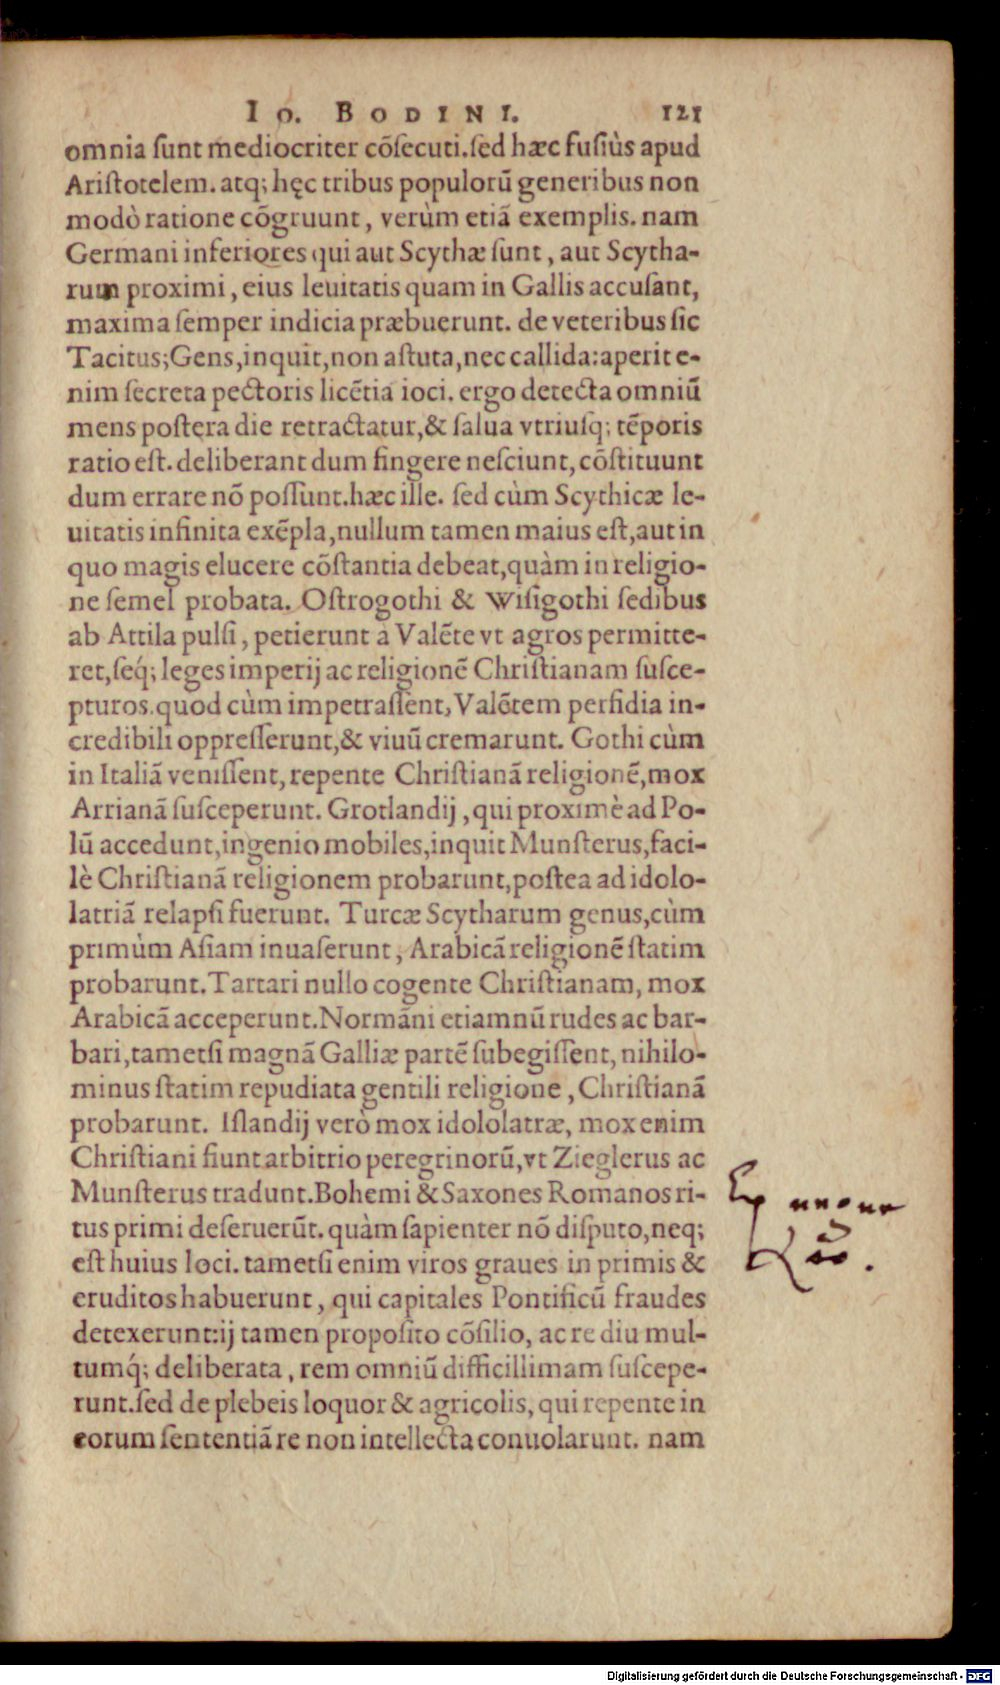 Io. BODINI. 121
omnia sunt mediocriter cõsecuti.sed hæc fusiùs apud
Aristotelem. atq; hęc tribus populorũ generibus non
modò ratione cõgruunt, verùm etiã exemplis. nam
Germani inferiores qui aut Scythæ sunt, aut Scytha-
rum proximi, eius leuitatis quam in Gallis accusant,
maxima semper indicia præbuerunt. de veteribus sic
Tacitus; Gens, inquit, non astuta, nec callida: aperit e-
nim secreta pectoris licẽtia ioci. ergo detecta omniũ
mens postera die retractatur, & salua vtriusq; tẽporis
ratio est. deliberant dum fingere nesciunt, cõstituunt
dum errare nõ possunt. hæc ille. sed cùm Scythicæ le-
uitatis infinita exẽpla, nullum tamen maius est, aut in
quo magis elucere cõstantia debeat, quàm in religio-
ne semel probata. Ostrogothi & Wisigothi sedibus
ab Attila pulsi, petierunt à Valẽte vt agros permitte-
ret, seq́; leges imperij ac religionẽ Christianam susce-
pturos. quod cùm impetrassent, Valẽtem perfidia in-
credibili oppresserunt, & viuũ cremarunt. Gothi cùm
in Italiã venissent, repente Christianã religionẽ, mox
Arrianã susceperunt. Grotlandij, qui proximè ad Po-
lũ accedunt, ingenio mobiles, inquit Munsterus, faci-
lè Christianã religionem probarunt, postea ad idolo-
latriã relapsi fuerunt. Turcæ Scytharum genus, cùm
primùm Asiam inuaserunt, Arabicã religionẽ statim
probarunt. Tartari nullo cogente Christianam, mox
Arabicã acceperunt. Normãni etiamnũ rudes ac bar-
bari, tametsi magnã Galliæ partẽ subegissent, nihilo-
minus statim repudiata gentili religione, Christianã
probarunt. Islandij verò mox idololatræ, mox enim
Christiani fiunt arbitrio peregrinorũ, vt Zieglerus ac
Munsterus tradunt. Bohemi & Saxones Romanos ri-
tus primi deseruerũt. quàm sapienter nõ disputo, neq;
est huius loci. tametsi enim viros graues in primis &
eruditos habuerunt, qui capitales Pontificũ fraudes
detexerunt: ij tamen proposito cõsilio, ac re diu mul-
tumq́; deliberata, rem omniũ difficillimam suscepe-
runt. sed de plebeis loquor & agricolis, qui repente in
eorum sententiã re non intellecta conuolarunt. nam
Digitalisierung gefördert durch die Deutsche Forschungsgemeinschaft - DFG